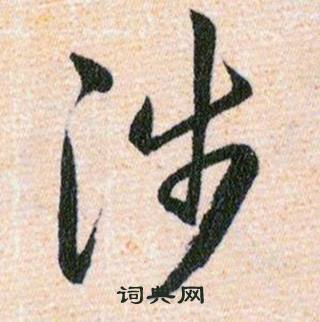 涉
词典网